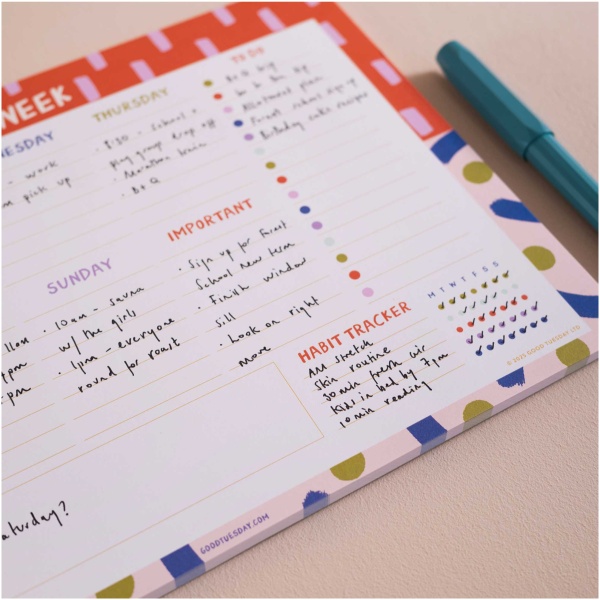 WEEK
NESDAY
- work
m pick up
THURSDAY
· 8:30 - School +
play group drop off
· Marathon train
· B+Q
TO DO
Allotment plan
Forest school sign up
Birthday cake recipes
SUNDAY
· 10am - sauna
w/ the girls
· 1pm - everyone
round for roast
11am
pm
pm
IMPORTANT
· Sign up for Forest
School new term
· Finish window
sill
· Look on right
more
HABIT TRACKER
M T W T F S S
AM stretch
Skin routine
30min fresh air
Kids in bed by 7pm
10 min reading
aturday?
GOODTUESDAY.COM
© 2021 GOOD TUESDAY LTD